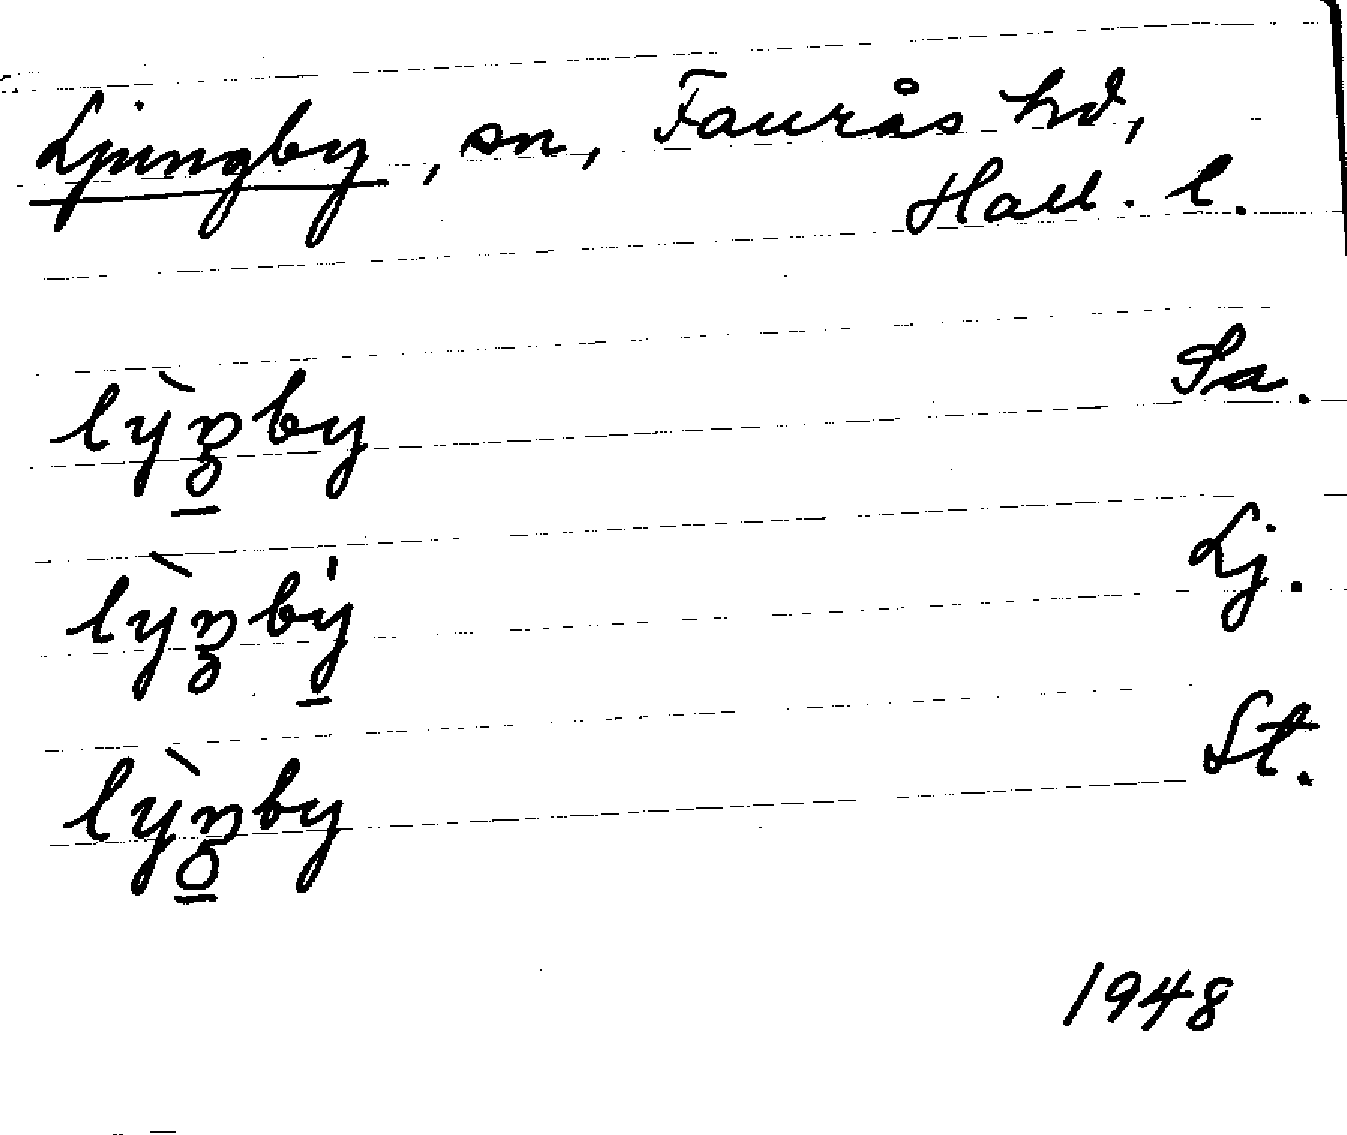 Ljungby, sn, Faurås hd,
Hall. l.
lỳŋby Sa.
lỳŋbẏ Lj.
lỳŋby St.
1948